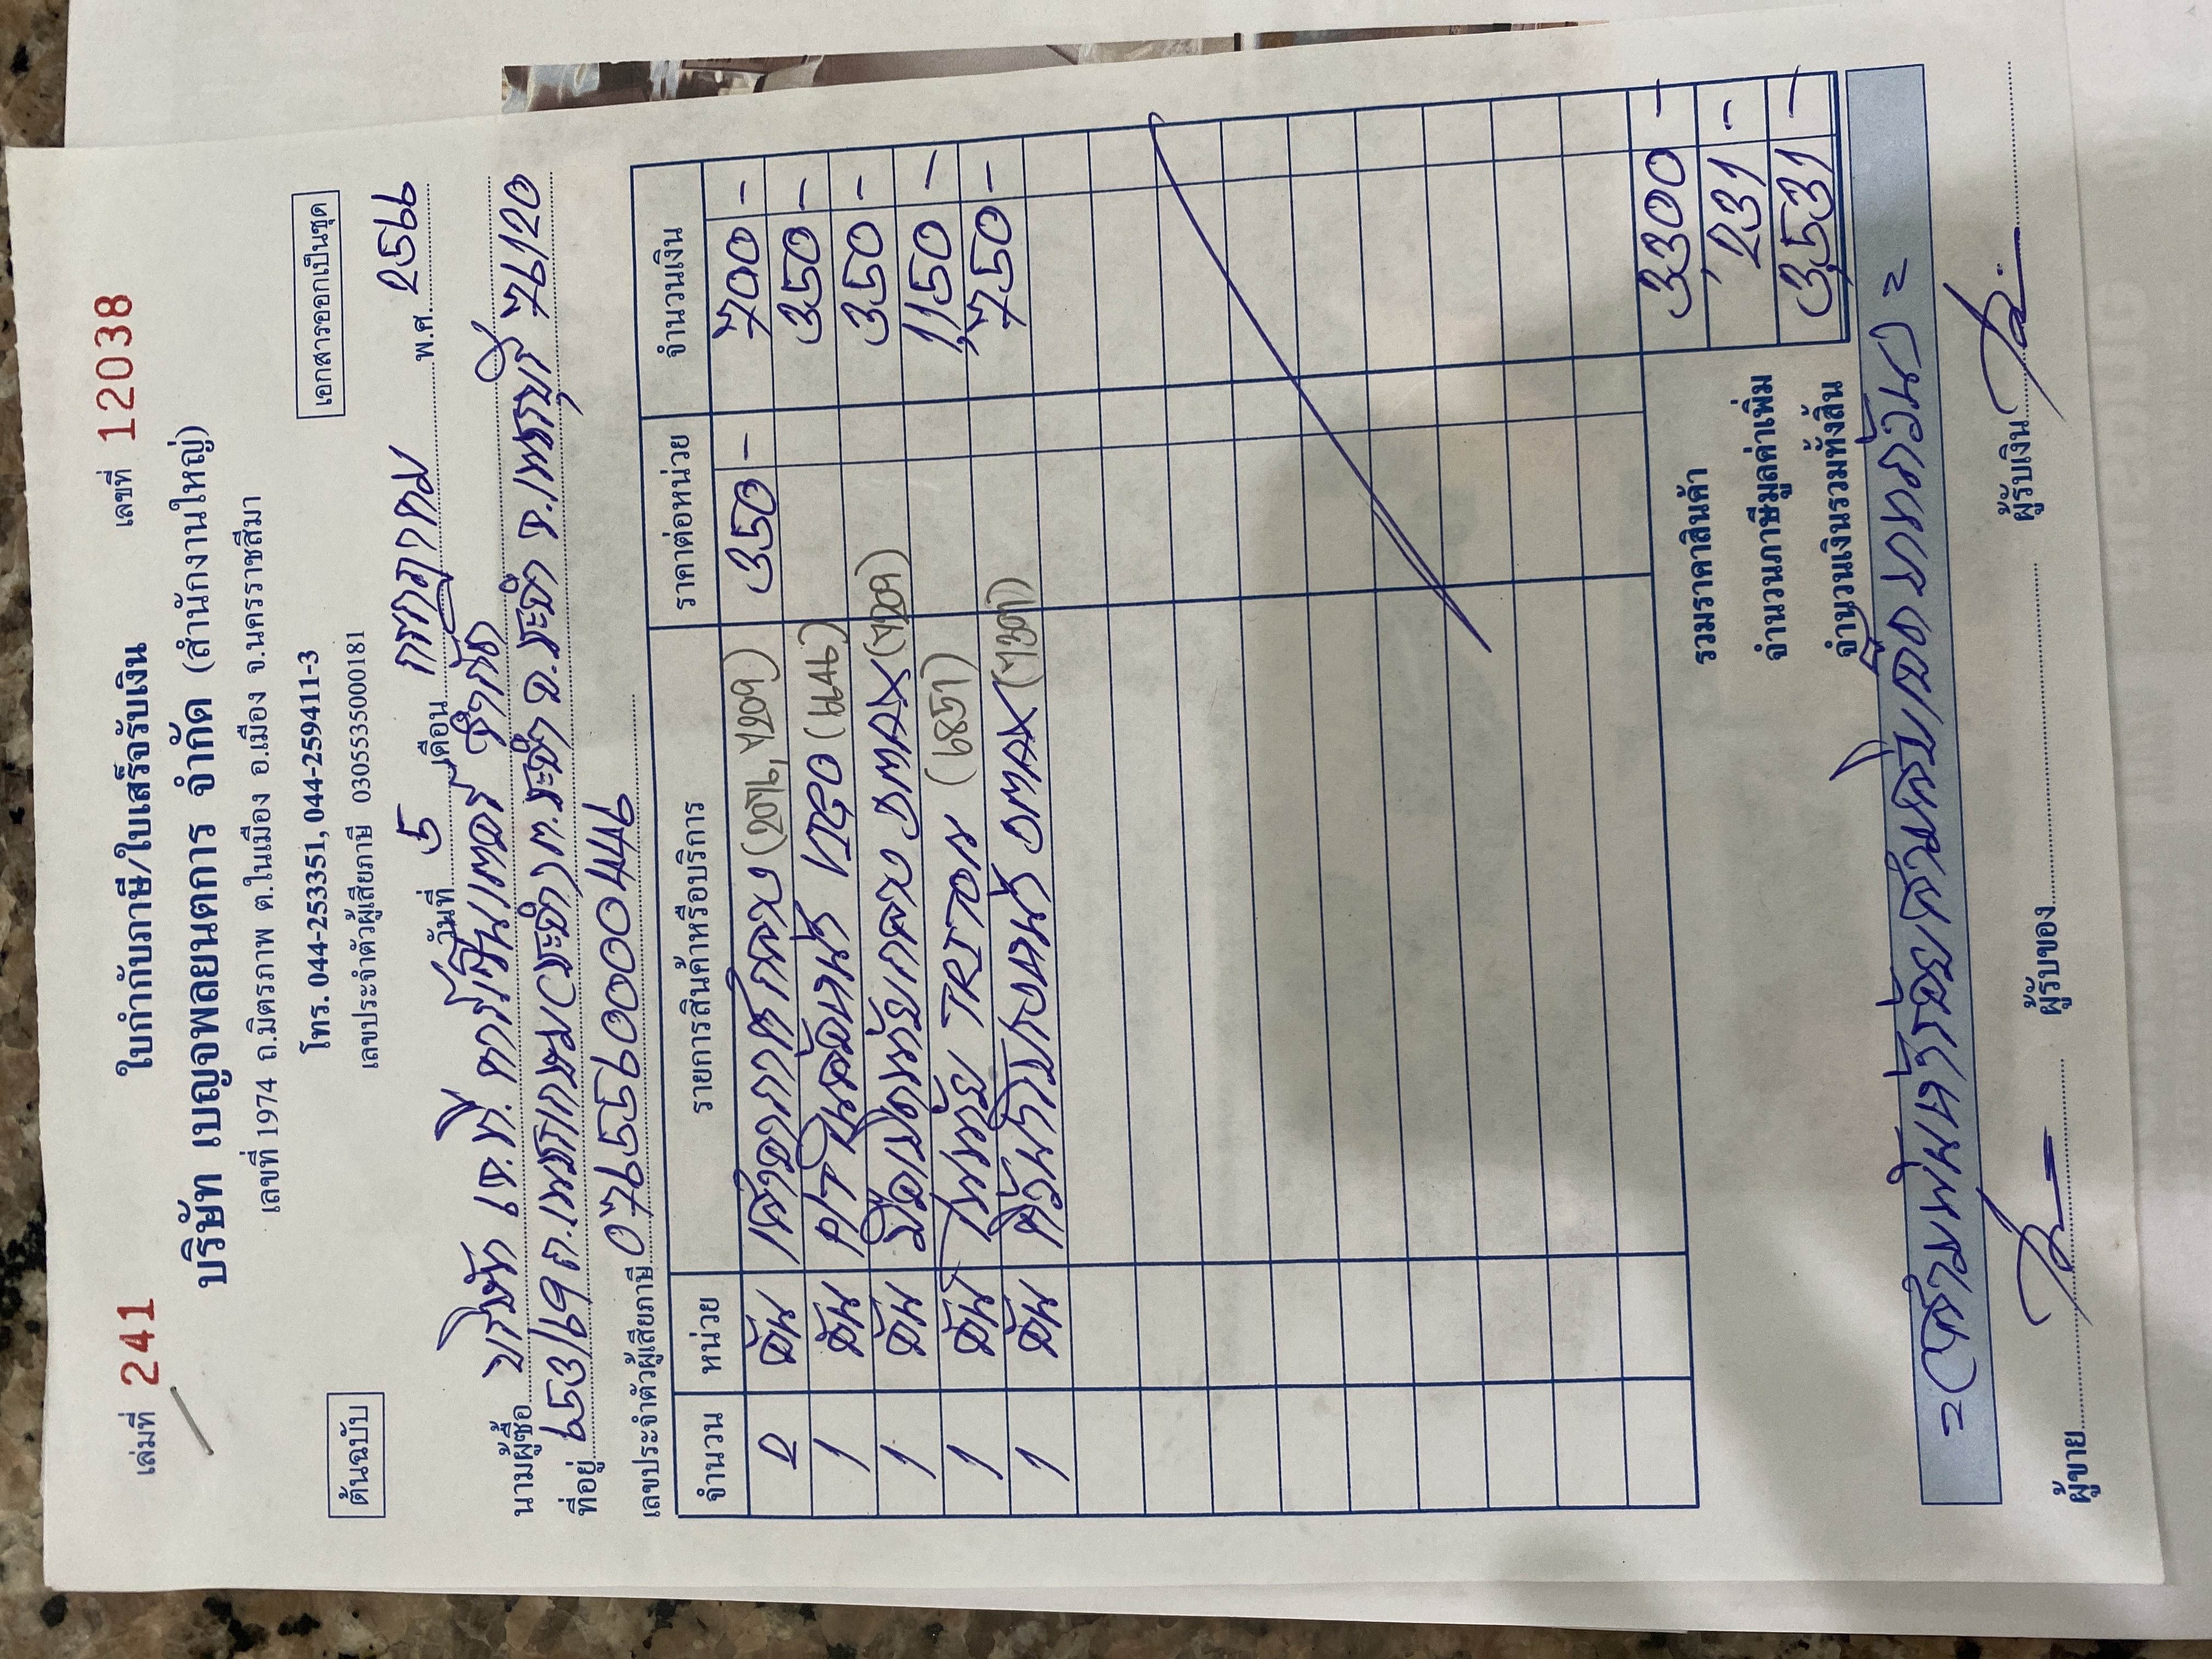 เล่มที่ 241 ใบกำกับภาษี/ใบเสร็จรับเงิน เลขที่ 12038
บริษัท เบญจพลยนตการ จำกัด (สำนักงานใหญ่)
เลขที่ 1974 ถ.มิตรภาพ ต.ในเมือง อ.เมือง จ.นครราชสีมา
โทร. 044-253351, 044-259411-3
เลขประจำตัวผู้เสียภาษี 0305535000181
ต้นฉบับ
เอกสารออกเป็นชุด
วันที่ 5 เดือน กรกฎาคม พ.ศ. 2566
นามผู้ซื้อ บริษัท เจ.ที. จำกัด
ที่อยู่ ถ.เพชรเกษม ต.ชะอำ อ.ชะอำ จ.เพชรบุรี 76120
เลขประจำตัวผู้เสียภาษี
จำนวน หน่วย รายการสินค้าหรือบริการ ราคาต่อหน่วย จำนวนเงิน
2 อัน 350 - 700 -
1 อัน 350 -
1 อัน DMAX 350 -
1 อัน TRITON 1,150 -
1 อัน DMAX 750 -
รวมราคาสินค้า 3300 -
จำนวนภาษีมูลค่าเพิ่ม 231 -
จำนวนเงินรวมทั้งสิ้น 3,531 -
=(สามพันห้าร้อยสามสิบเอ็ดบาทถ้วน)=
ผู้ขาย ผู้รับของ ผู้รับเงิน